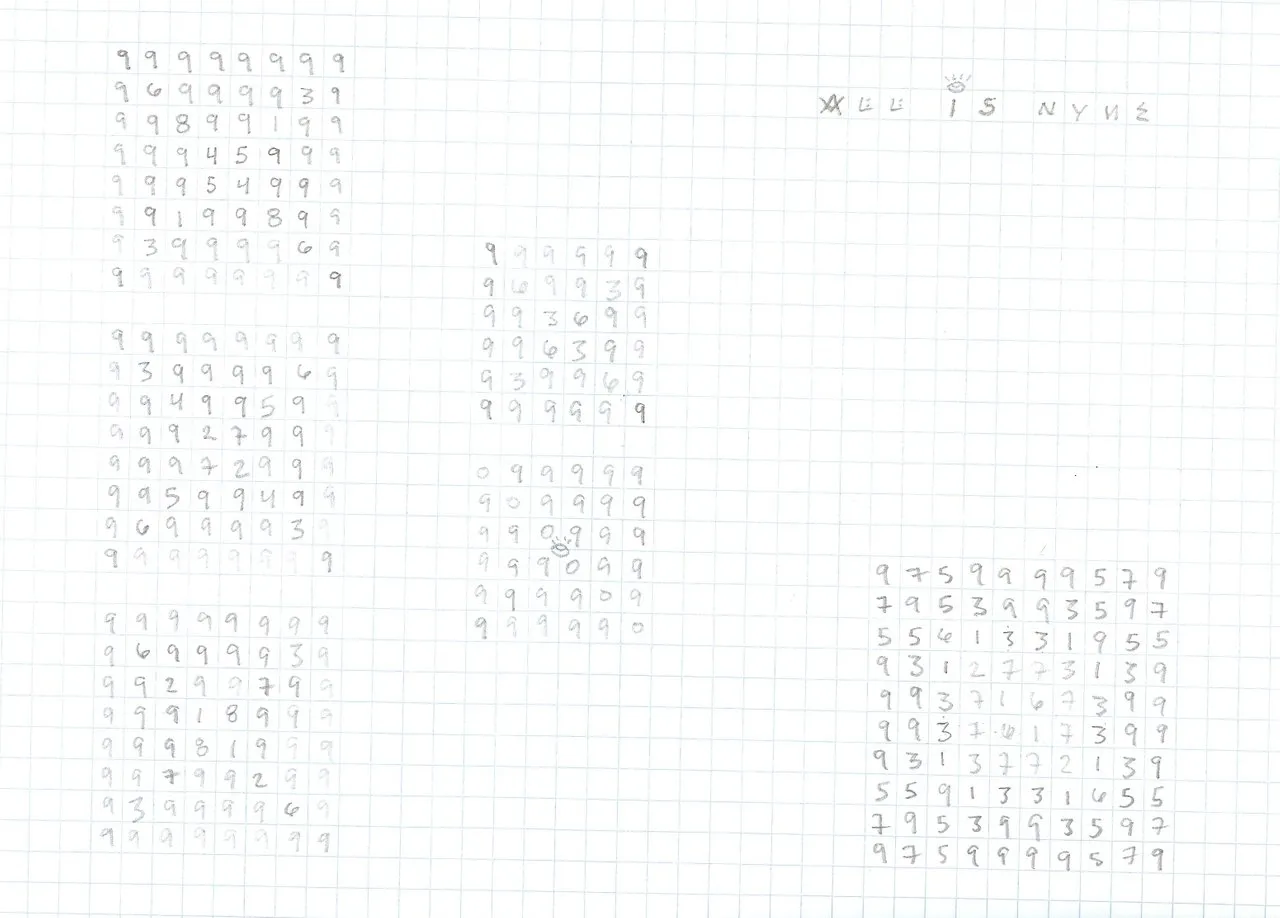 ALL IS NYNE
9 9 9 9 9 9 9 9
9 6 9 9 9 9 3 9
9 9 8 9 9 1 9 9
9 9 9 4 5 9 9 9
9 9 9 5 4 9 9 9
9 9 1 9 9 8 9 9
9 3 9 9 9 9 6 9
9 9 9 9 9 9 9 9
9 9 9 9 9 9 9 9
9 3 9 9 9 9 6 9
9 9 4 9 9 5 9 9
9 9 9 2 7 9 9 9
9 9 9 7 2 9 9 9
9 9 5 9 9 4 9 9
9 6 9 9 9 9 3 9
9 9 9 9 9 9 9 9
9 9 9 9 9 9 9 9
9 6 9 9 9 9 3 9
9 9 2 9 9 7 9 9
9 9 9 1 8 9 9 9
9 9 9 8 1 9 9 9
9 9 7 9 9 2 9 9
9 3 9 9 9 9 6 9
9 9 9 9 9 9 9 9
9 9 9 9 9 9
9 6 9 9 3 9
9 9 3 6 9 9
9 9 6 3 9 9
9 3 9 9 6 9
9 9 9 9 9 9
0 9 9 9 9 9
9 0 9 9 9 9
9 9 0 9 9 9
9 9 9 0 9 9
9 9 9 9 0 9
9 9 9 9 9 0
9 7 5 9 9 9 9 5 7 9
7 9 5 3 9 9 3 5 9 7
5 5 6 1 3 3 1 9 5 5
9 3 1 2 7 7 3 1 3 9
9 9 3 7 1 6 7 3 9 9
9 9 3 7 6 1 7 3 9 9
9 3 1 3 7 7 2 1 3 9
5 5 9 1 3 3 1 6 5 5
7 9 5 3 9 9 3 5 9 7
9 7 5 9 9 9 9 5 7 9